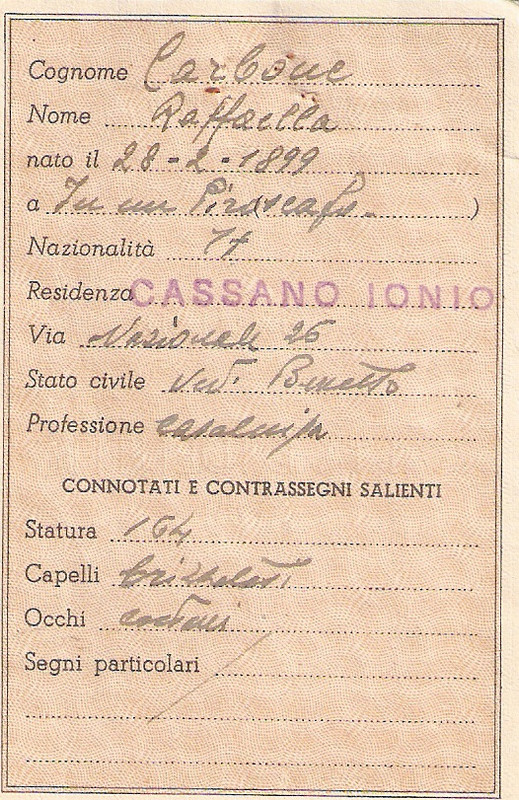 Cognome Carbone
Nome Raffaella
nato il 28-2-1899
a In un Piroscafo )
Nazionalità It
Residenza CASSANO IONIO
Via Nazionale 26
Stato civile Ved.
Professione casalinga
CONNOTATI E CONTRASSEGNI SALIENTI
Statura 164
Capelli brizzolati
Occhi castani
Segni particolari